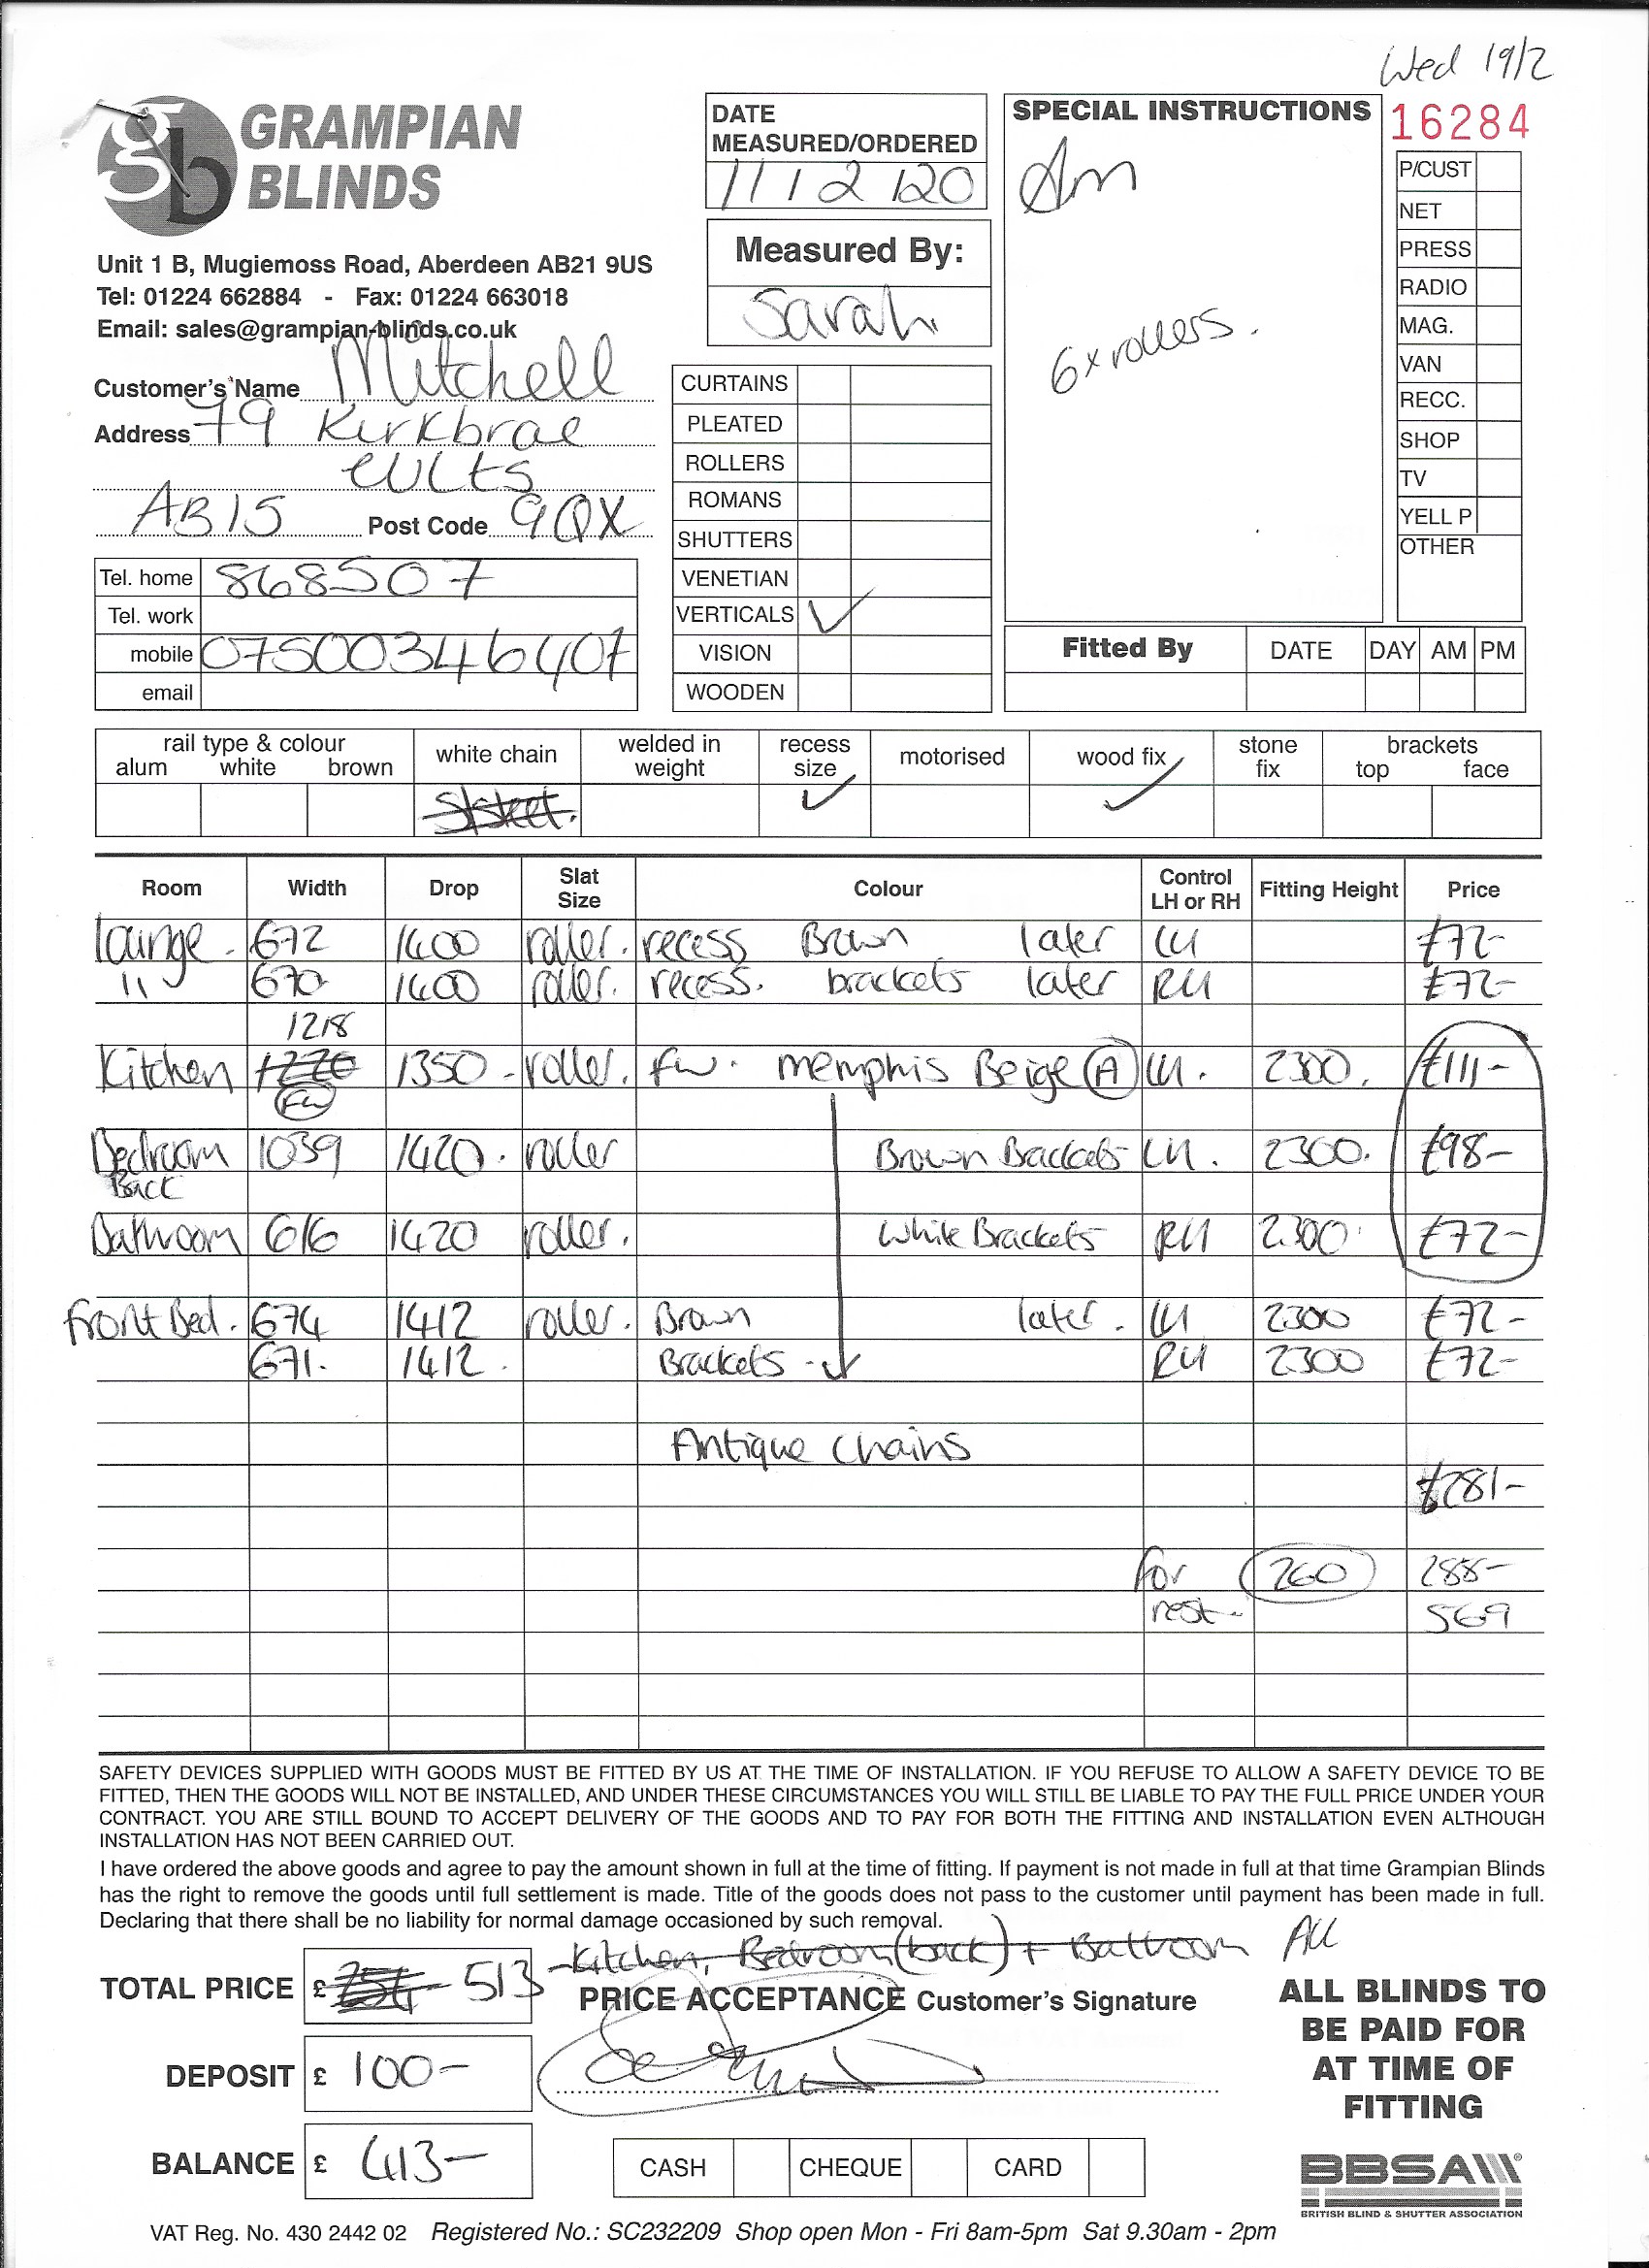 Wed 19/2
GRAMPIAN
BLINDS
Unit 1 B, Mugiemoss Road, Aberdeen AB21 9US
Tel: 01224 662884 - Fax: 01224 663018
Email: sales@grampian-blinds.co.uk
Customer's Name Mitchell
Address 79 Kirkbrae
Cults
AB15 Post Code 9QX
Tel. home 868507
Tel. work
mobile 07500346407
email
DATE
MEASURED/ORDERED
11/2/20
Measured By:
Sarah
CURTAINS
PLEATED
ROLLERS
ROMANS
SHUTTERS
VENETIAN
VERTICALS ✓
VISION
WOODEN
SPECIAL INSTRUCTIONS
Am
6x rollers.
16284
P/CUST
NET
PRESS
RADIO
MAG.
VAN
RECC.
SHOP
TV
YELL P
OTHER
Fitted By DATE DAY AM PM
rail type & colour white chain welded in weight recess size motorised wood fix stone fix brackets
alum white brown top face
✓ ✓
Room Width Drop Slat Size Colour Control LH or RH Fitting Height Price
lounge - 672 1400 roller. recess Brown later LH £72-
11 670 1400 roller. recess. brackets later RH £72-
1218
Kitchen 1220 1350 - roller. fw. Memphis Beige A LH. 2300. £111-
FW
Bedroom 1039 1420. roller Brown Brackets LH. 2300. £98-
Back
Bathroom 616 1420 roller. White Brackets RH 2300 £72-
Front Bed. 674 1412 roller. Brown later. LH 2300 £72-
671. 1412. Brackets - RH 2300 £72-
Antique chains
£281-
for 260 288-
rest - 569
SAFETY DEVICES SUPPLIED WITH GOODS MUST BE FITTED BY US AT THE TIME OF INSTALLATION. IF YOU REFUSE TO ALLOW A SAFETY DEVICE TO BE
FITTED, THEN THE GOODS WILL NOT BE INSTALLED, AND UNDER THESE CIRCUMSTANCES YOU WILL STILL BE LIABLE TO PAY THE FULL PRICE UNDER YOUR
CONTRACT. YOU ARE STILL BOUND TO ACCEPT DELIVERY OF THE GOODS AND TO PAY FOR BOTH THE FITTING AND INSTALLATION EVEN ALTHOUGH
INSTALLATION HAS NOT BEEN CARRIED OUT.
I have ordered the above goods and agree to pay the amount shown in full at the time of fitting. If payment is not made in full at that time Grampian Blinds
has the right to remove the goods until full settlement is made. Title of the goods does not pass to the customer until payment has been made in full.
Declaring that there shall be no liability for normal damage occasioned by such removal.
Kitchen, Bedroom (back) + Bathroom All
TOTAL PRICE £ 513
PRICE ACCEPTANCE Customer's Signature
DEPOSIT £ 100-
BALANCE £ 413-
CASH CHEQUE CARD
ALL BLINDS TO
BE PAID FOR
AT TIME OF
FITTING
BBSA
BRITISH BLIND & SHUTTER ASSOCIATION
VAT Reg. No. 430 2442 02 Registered No.: SC232209 Shop open Mon - Fri 8am-5pm Sat 9.30am - 2pm